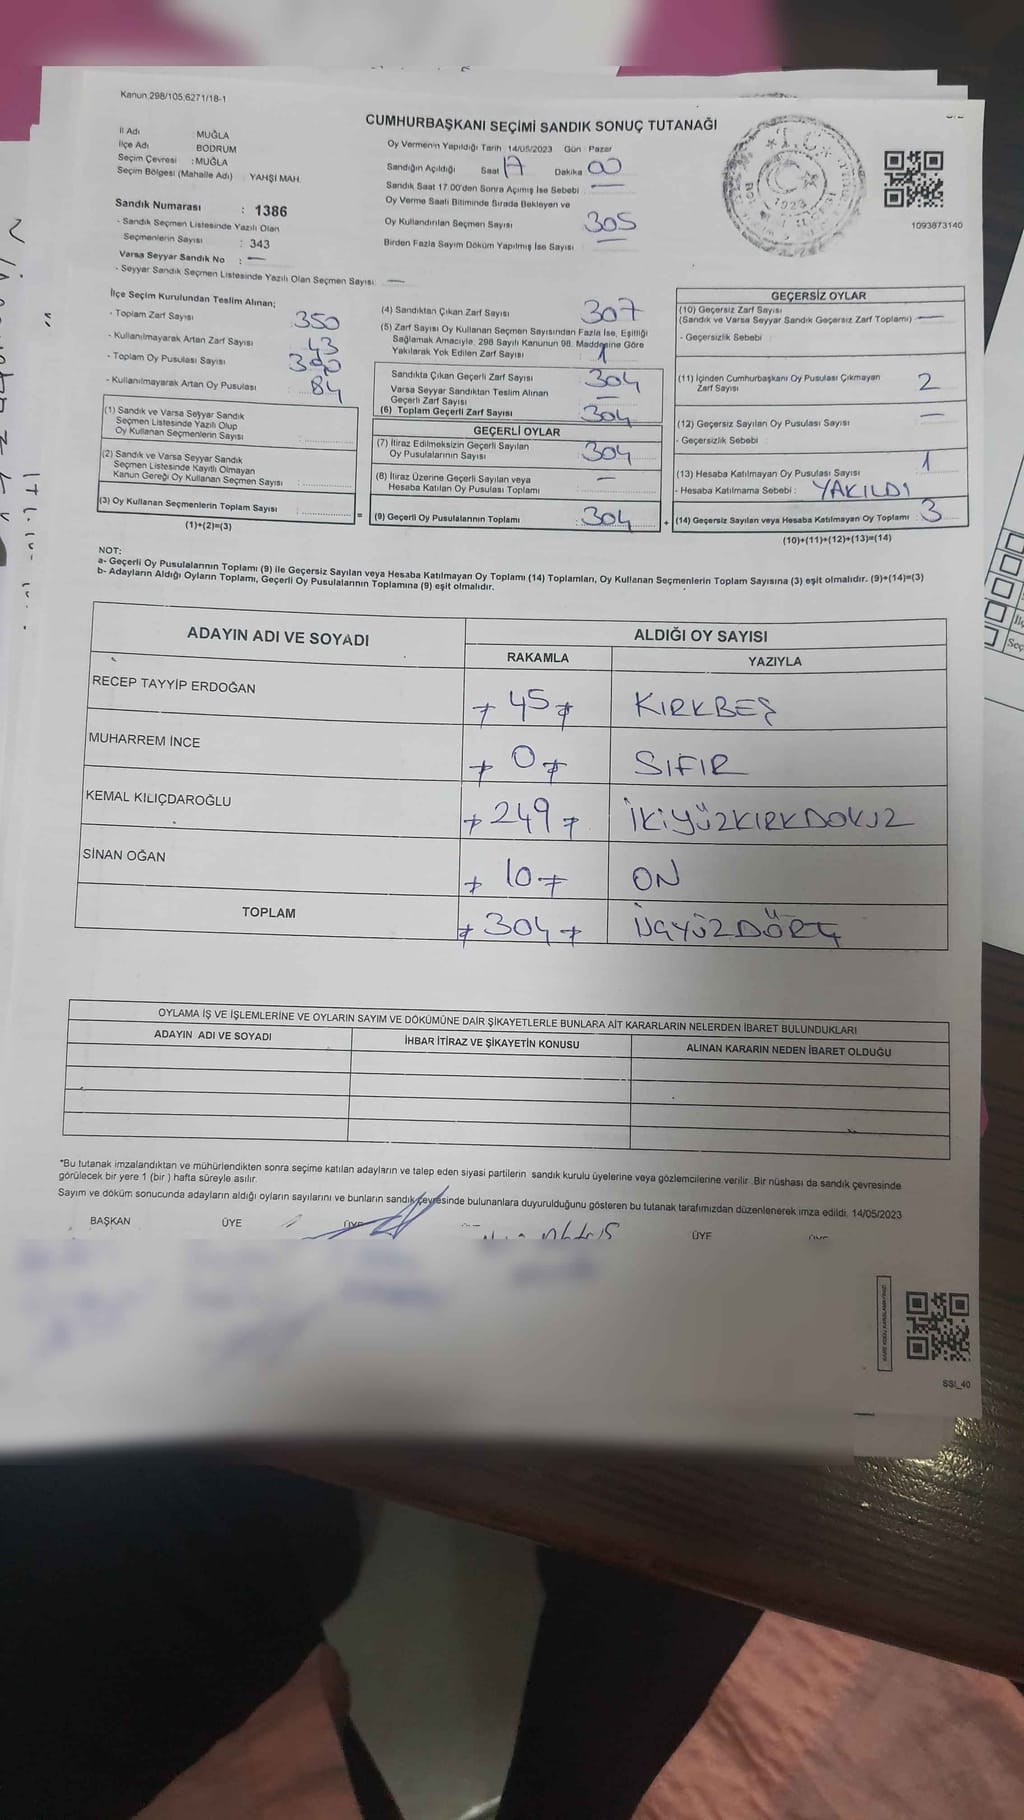 Kanun.298/105,6271/18-1
CUMHURBAŞKANI SEÇİMİ SANDIK SONUÇ TUTANAĞI
İl Adı : MUĞLA
İlçe Adı BODRUM
Seçim Çevresi : MUĞLA
Seçim Bölgesi (Mahalle Adı) : YAHŞİ MAH.
Sandık Numarası : 1386
- Sandık Seçmen Listesinde Yazılı Olan
Seçmenlerin Sayısı : 343
Varsa Seyyar Sandık No : —
- Seyyar Sandık Seçmen Listesinde Yazılı Olan Seçmen Sayısı: —
Oy Vermenin Yapıldığı Tarih 14/05/2023 Gün : Pazar
Sandığın Açıldığı Saat 17 Dakika 00
Sandık Saat 17.00'den Sonra Açılmış İse Sebebi : —
Oy Verme Saati Bitiminde Sırada Bekleyen ve
Oy Kullandırılan Seçmen Sayısı 305
Birden Fazla Sayım Döküm Yapılmış İse Sayısı —
T.C.
1923
1093873140
İlçe Seçim Kurulundan Teslim Alınan;
- Toplam Zarf Sayısı 350
- Kullanılmayarak Artan Zarf Sayısı 43
- Toplam Oy Pusulası Sayısı
- Kullanılmayarak Artan Oy Pusulası 84
(1) Sandık ve Varsa Seyyar Sandık
Seçmen Listesinde Yazılı Olup
Oy Kullanan Seçmenlerin Sayısı :
(2) Sandık ve Varsa Seyyar Sandık
Seçmen Listesinde Kayıtlı Olmayan
Kanun Gereği Oy Kullanan Seçmen Sayısı :
(3) Oy Kullanan Seçmenlerin Toplam Sayısı :
(1)+(2)=(3)
=
(4) Sandıktan Çıkan Zarf Sayısı 307
(5) Zarf Sayısı Oy Kullanan Seçmen Sayısından Fazla İse, Eşitliği
Sağlamak Amacıyla, 298 Sayılı Kanunun 98. Maddesine Göre
Yakılarak Yok Edilen Zarf Sayısı : 1
Sandıkta Çıkan Geçerli Zarf Sayısı 304
Varsa Seyyar Sandıktan Teslim Alınan
Geçerli Zarf Sayısı —
(6) Toplam Geçerli Zarf Sayısı 304
GEÇERLİ OYLAR
(7) İtiraz Edilmeksizin Geçerli Sayılan
Oy Pusulalarının Sayısı 304
(8) İtiraz Üzerine Geçerli Sayılan veya
Hesaba Katılan Oy Pusulası Toplamı : —
(9) Geçerli Oy Pusulalarının Toplamı : 304
+
GEÇERSİZ OYLAR
(10) Geçersiz Zarf Sayısı
(Sandık ve Varsa Seyyar Sandık Geçersiz Zarf Toplamı) —
- Geçersizlik Sebebi :
(11) İçinden Cumhurbaşkanı Oy Pusulası Çıkmayan
Zarf Sayısı 2
(12) Geçersiz Sayılan Oy Pusulası Sayısı —
- Geçersizlik Sebebi :
(13) Hesaba Katılmayan Oy Pusulası Sayısı 1
- Hesaba Katılmama Sebebi : YAKILDI
(14) Geçersiz Sayılan veya Hesaba Katılmayan Oy Toplamı : 3
(10)+(11)+(12)+(13)=(14)
NOT:
a- Geçerli Oy Pusulalarının Toplamı (9) ile Geçersiz Sayılan veya Hesaba Katılmayan Oy Toplamı (14) Toplamları, Oy Kullanan Seçmenlerin Toplam Sayısına (3) eşit olmalıdır. (9)+(14)=(3)
b- Adayların Aldığı Oyların Toplamı, Geçerli Oy Pusulalarının Toplamına (9) eşit olmalıdır.
ADAYIN ADI VE SOYADI ALDIĞI OY SAYISI
RAKAMLA YAZIYLA
RECEP TAYYİP ERDOĞAN 45 KIRKBEŞ
MUHARREM İNCE 0 SIFIR
KEMAL KILIÇDAROĞLU 249 İKİYÜZKIRKDOKUZ
SİNAN OĞAN 10 ON
TOPLAM 304 ÜÇYÜZDÖRT
OYLAMA İŞ VE İŞLEMLERİNE VE OYLARIN SAYIM VE DÖKÜMÜNE DAİR ŞİKAYETLERLE BUNLARA AİT KARARLARIN NELERDEN İBARET BULUNDUKLARI
ADAYIN ADI VE SOYADI İHBAR İTİRAZ VE ŞİKAYETİN KONUSU ALINAN KARARIN NEDEN İBARET OLDUĞU
*Bu tutanak imzalandıktan ve mühürlendikten sonra seçime katılan adayların ve talep eden siyasi partilerin sandık kurulu üyelerine veya gözlemcilerine verilir .Bir nüshası da sandık çevresinde
görülecek bir yere 1 (bir ) hafta süreyle asılır.
Sayım ve döküm sonucunda adayların aldığı oyların sayılarını ve bunların sandık çevresinde bulunanlara duyurulduğunu gösteren bu tutanak tarafımızdan düzenlenerek imza edildi. 14/05/2023
BAŞKAN ÜYE ÜYE ÜYE
SSI_40